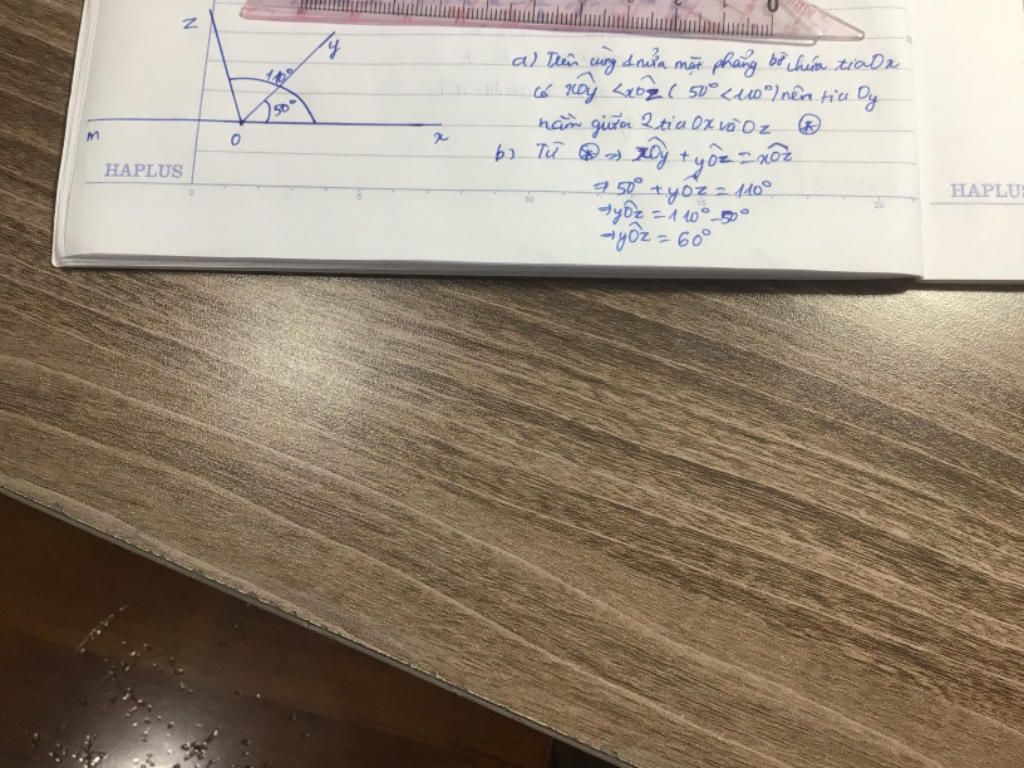 z
y
110°
50°
m
O
x
HAPLUS
0
5
10
15
20
a) Trên cùng 1 nửa mặt phẳng bờ chứa tia Ox
có xÔy < xÔz ( 50° < 110° ) nên tia Oy
nằm giữa 2 tia Ox và Oz ⊛
b) Từ ⊛ ⇒ xÔy + yÔz = xÔz
⇒ 50° + yÔz = 110°
⇒ yÔz = 110° - 50°
⇒ yÔz = 60°
HAPLUS